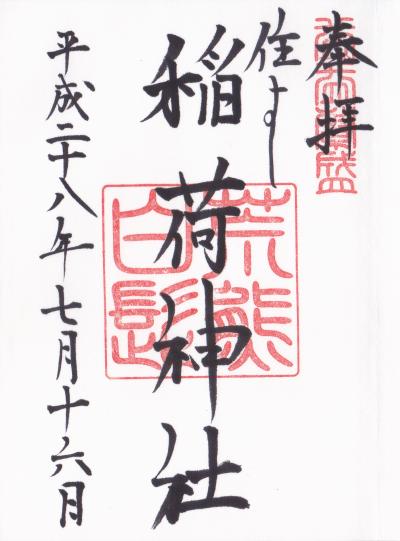 奉拝
住よし
稲荷神社
荒熊
白髭
平成二十八年七月十六日